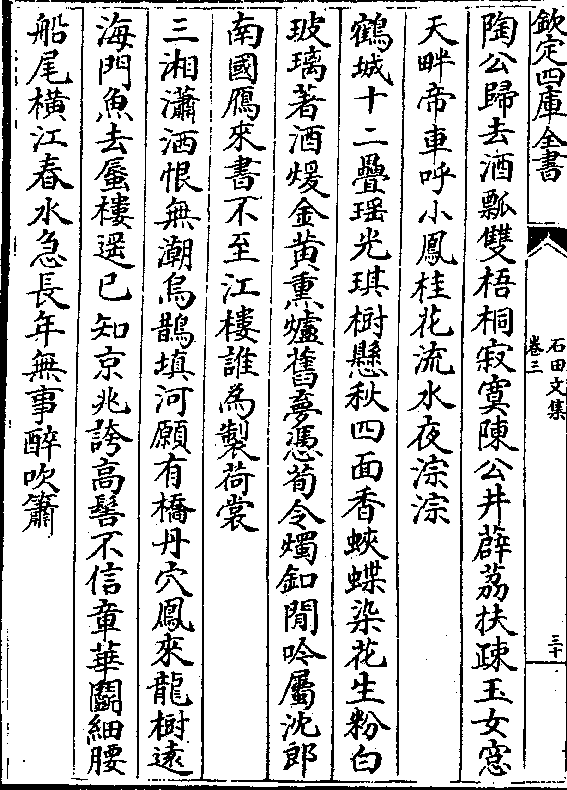 欽定四庫全書
石田文集
卷三
三十
陶公歸去酒瓢雙梧桐寂寞陳公井薜荔扶疎玉女窓
天畔帝車呼小鳳桂花流水夜淙淙
鶴城十二疊瑶光琪樹懸秋四面香蛺蝶染花生粉白
玻璃著酒煖金黄熏爐舊夢憑荀令燭釦閒吟屬沈郎
南國鴈來書不至江樓誰為製荷裳
三湘瀟洒恨無潮烏鵲填河願有橋丹穴鳳來龍樹遠
海門魚去蜃樓遥已知京兆誇高髻不信章華鬭細腰
船尾横江春水急長年無事醉吹簫